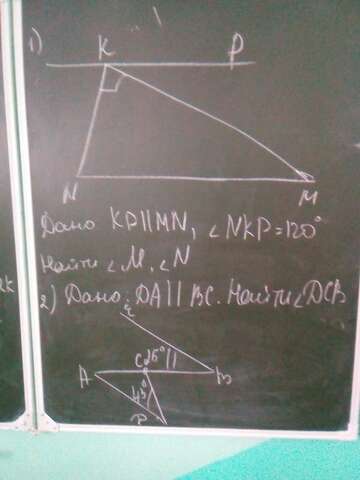 1)
K P
N M
Дано KP||MN, ∠NKP=120°
Найти ∠M, ∠N
2) Дано: DA||BC. Найти ∠DCB
E
A C 25° B
43°
D